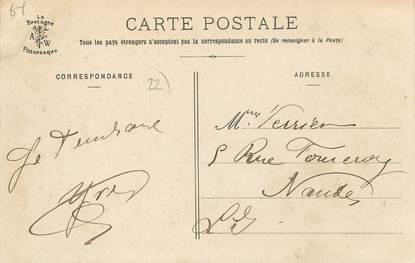 64
La
Bretagne
A W
Pittoresque
CARTE POSTALE
Tous les pays étrangers n'acceptent pas la correspondance au recto (Se renseigner à la Poste)
CORRESPONDANCE
22)
ADRESSE
Je t'embrasse
Mme Verrier
5 Rue
Nantes